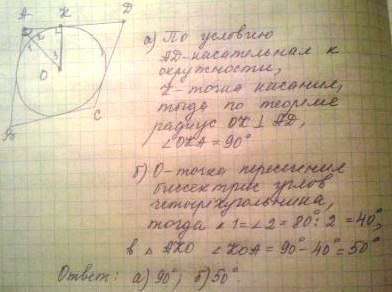 A K D
1 2
3
O
B C
а) По условию
AD-касательная к
окружности,
K-точка касания,
тогда по теореме
радиус OK ⊥ AD,
∠OKA = 90°
б) O-точка пересечения
биссектрис углов
четырехугольника,
тогда ∠1 = ∠2 = 80° : 2 = 40°,
в △ AKO ∠KOA = 90° - 40° = 50°
Ответ: а) 90°; б) 50°